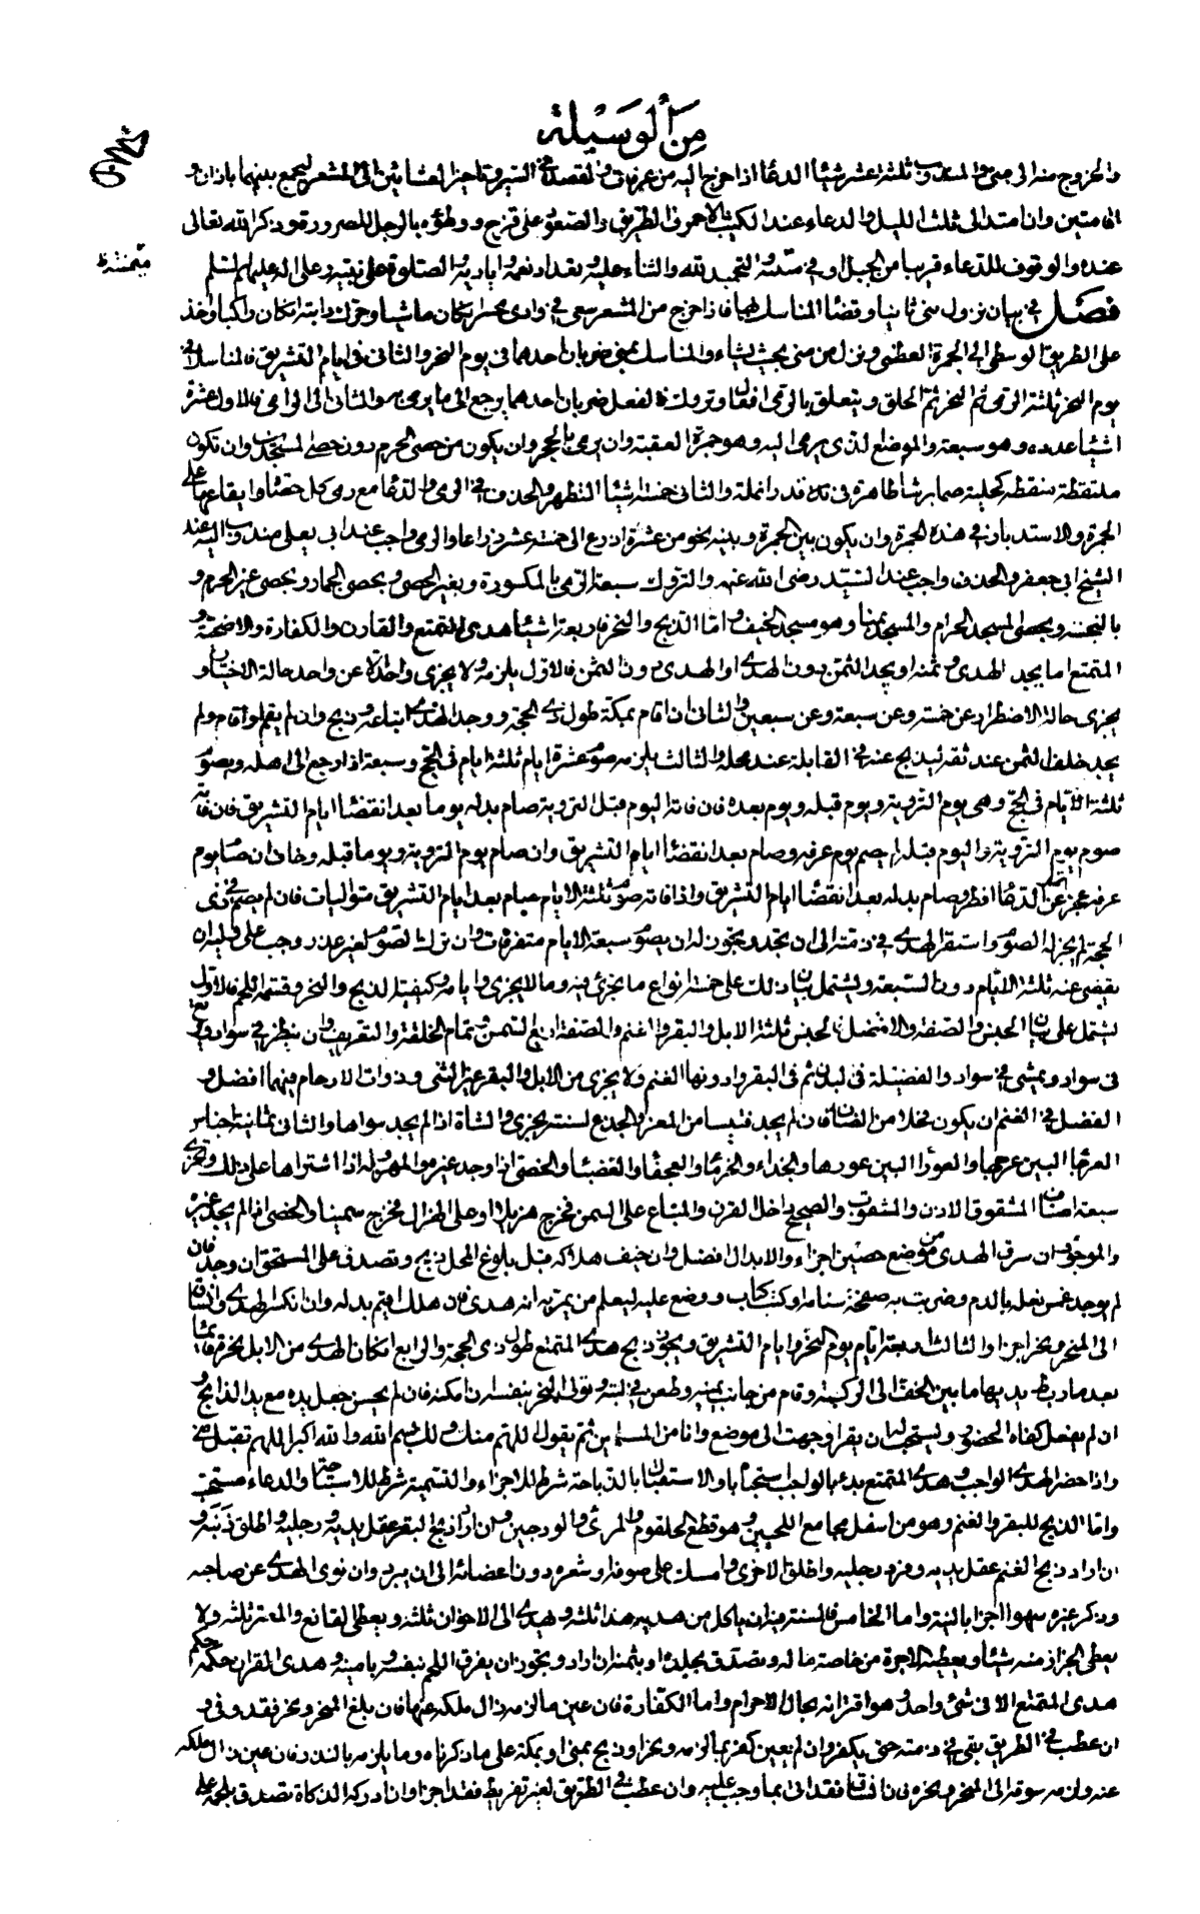 من الوسيلة
والخروج منه الى منى والمندوب ثلثة عشر شيئا الدعاء اذا خرج اليه من عرفات والقصد في السير وتاخير العشائين الى المشعر ليجمع بينهما باذان و
اقامتين وان امتد الى ثلث الليل والدعاء عند الكثيب الاحمر في الطريق والصعود على قزح ووطؤه بالرجل للصرورة وذكر الله تعالى
عنده والوقوف للدعاء قريبا من الجبل او في والتحميد لله والثناء عليه وتعداد نعمه واياديه والصلوة على نبيه وعلى اله عليهم السلم
فصل في بيان نزول منى ثانيا وقضاء المناسك بها فاذا خرج من المشعر سعى في وادى محسر ان كان ماشيا وحرك دابته ان كان راكبا واخذ
على الطريق الوسطى الى الجمرة العظمى ونزل من منى بحيث شاء والمناسك بمنى ضربان احدهما في يوم النحر والثانى في ايام التشريق فالمناسك في
يوم النحر ثلثة الرمى ثم النحر ثم الحلق ويتعلق بالرمى افعال وتروك فالفعل ضربان احدهما يرجع الى ما يرمى به والثانى الى الرامى فالاول عشرة
اشياء عدده وهو سبعة والموضع الذى يرمى اليه وهو جمرة العقبة وان يرمى بالحجر وان يكون من حصى الحرم دون حصى المسجدين وان تكون
ملتقطة منقطة كحلية صما برشا طاهرة في قدر انملة والثانى خمسة اشياء التطهر والحذف في الرمى والدعاء مع رمى كل حصاة وايقاعها على
الجمرة والاستدبار في هذه الجمرة وان يكون بين الجمرة وبينه نحو من عشرة اذرع الى خمسة عشر ذراعا والرمى واجب عند ابى يعلى مندوب اليه عند
الشيخ ابى جعفر والحذف واجب عند السيد رضى الله عنهم والتروك سبعة الرمى بالمكسورة وبغير الحصى وبحصى الجمار وبحصى غير الحرم و
بالنجسة وبحصى المسجد الحرام والمسجد بمنا وهو مسجد الخيف واما الذبح والنحر فاربعة اشياء هدى المتمتع والقارن والكفارة والاضحية و
المتمتع اما يجد الهدى وثمنه او يجد الثمن دون الهدى او الهدى دون الثمن فالاول يلزمه ولا يجزى واحدة عن واحد حالة الاختيار و
يجزى حالة الاضطرار عن خمسة وعن سبعة وعن سبعين والثانى ان اقام بمكة طول ذى الحجة ووجد الهدى ابتاعه وذبح وان لم يقم او اقام ولم
يجد خلف الثمن عند ثقة ليذبح عنه في القابلة عند محله والثالث يلزمه صوم عشرة ايام ثلثة ايام في الحج وسبعة اذا رجع الى اهله ويصوم
ثلثة الايام في الحج وهى يوم التروية ويوم قبله ويوم بعده فان فاته اليوم قبل التروية صام بدله يوما بعد انقضاء ايام التشريق فان فاته
صوم يوم التروية واليوم قبله لم يصم يوم عرفة وصام بعد انقضاء ايام التشريق وان صام يوم التروية ويوما قبله وخاف ان صام يوم
عرفة عجز عن الدعاء افطر وصام بدله بعد انقضاء ايام التشريق واذا فاته صوم ثلثة الايام صام بعد ايام التشريق متواليات فان لم يصم في ذى
الحجة لم يجزله الصوم واستقر الهدى في ذمته الى ان يجده ويجوز له ان يصوم سبعة الايام متفرقات وان ترك الصوم لغير عذر وجب على وليه ان
يقضى عنه ثلثة الايام دون السبعة ويشتمل بيان ذلك على خمسة انواع ما يجزى فيه وما لا يجزى وايامه وكيفية الذبح والنحر وقسمة اللحم فالاول
يشتمل على بيان الجنس والصفة والافضل فالجنس ثلثة الابل والبقر والغنم والصفة اربع السمن وتمام الخلقة والتعريف وان ينظر في سواد ويرتع
في سواد ويمشى في سواد والفضيلة في البدن ثم في البقر وادونها الغنم ولا يجزى من الابل والبقر غير الثنى وذوات الارحام فيهما افضل و
الفضل في الغنم ان يكون فحلا من الضان فان لم يجد فتيسا من المعز والجذع لسنة يجزى والشاة اذا لم يجد سواها والثانى ثمانية اجناس
العرجا البين عرجها والعورا البين عورها والجذاء والخرماء والعجفاء والعضباء والخصى ان وجد غيره والمهزولة اذا اشتراها على ذلك وتجزى
سبعة اصناف المشقوق الاذن والمثقوب والصحيح داخل القرن والمبتاع على السمن فخرج هزيلا او على الهزال فخرج سمينا والخصى اذا لم يجد غيره
والموجوء وان سرق الهدى من موضع حصين اجزاء والابدال افضل وان خيف هلاكه قبل بلوغ المحل ذبح وتصدق على المستحق ان وجد فان
لم يوجد غمس نعله بالدم وضربت به صفحة سنامه او كتب كتاب ووضع عليه ليعلم من يمر به انه هدى فان هلك اقيم بدله وان انكسر الهدى وانساق
الى المنحر ونحر اجزا والثالث اربعة ايام يوم النحر وايام التشريق ويجوز ذبح هدى المتمتع طول ذى الحجة والرابع ان كان الهدى من الابل نحره قائما
بعد ما ربط يديها ما بين الخف الى الركبة وقام من جانب يمينه وطعن في لبته وتولى النحر بنفسه ان امكنه فان لم يحسن جعل يده مع يد الذابح و
ان لم يفعل كفاه الحضور ويستحب ان يقرا وجهت الى موضع وانا من المسلمين ثم يقول اللهم منك ولك بسم الله والله اكبر اللهم تقبل منى
واذا حضر الهدى الواجب وهدى المتمتع بدء بالواجب استحبابا والاستقبال بالذباحة شرط للاجزاء والتسمية شرط للاستباحة والدعاء مستحب
واما الذبح للبقر والغنم وهو من اسفل مجامع اللحيين وهو قطع الحلقوم والمرئ والودجين وان اراد ذبح البقر عقل يديه ورجليه واطلق ذنبه و
ان اراد ذبح الغنم عقل يديه وفرد رجليه واطلق الاخرى وامسك على صوفه او شعره دون اعضائه الى ان يبرد وان نوى الهدى عن صاحبه
وذكر غيره سهوا اجزا بالنية واما الخامس فالسنة فيه ان ياكل من هديه هذا ثلثه ويهدى الى الاخوان ثلثه ويعطى القانع والمعتر ثلثه ولا
يعطى الجزار منه شيئا ويعطيه الاجرة من خاصة ماله وتصدق بجلده او بثمنه ان اراد ويجوز ان يفرق اللحم بنفسه وبامينه وهدى القران حكمه حكم
هدى المتمتع الا فى شئ واحد وهو اقترانه بحال الاحرام واما الكفارة فان عين ما لزمه زال ملكه عنها فان بلغ المنحر ونحر فقد وفى و
ان عطب في الطريق بقى في ذمته حتى يكفر وان لم يعين كفر بما لزمه ونحر او ذبح بمنى او بمكة على ما ذكرناه وما يلزمه بالنذر فان عين زال ملكه
عنه ولزمه سوقه الى المنحر ونحره فان انساق فقد اتى بما وجب عليه وان عطب في الطريق لغير تفريط فقد اجزا وان ادركه الذكاة تصدق بلحمه على